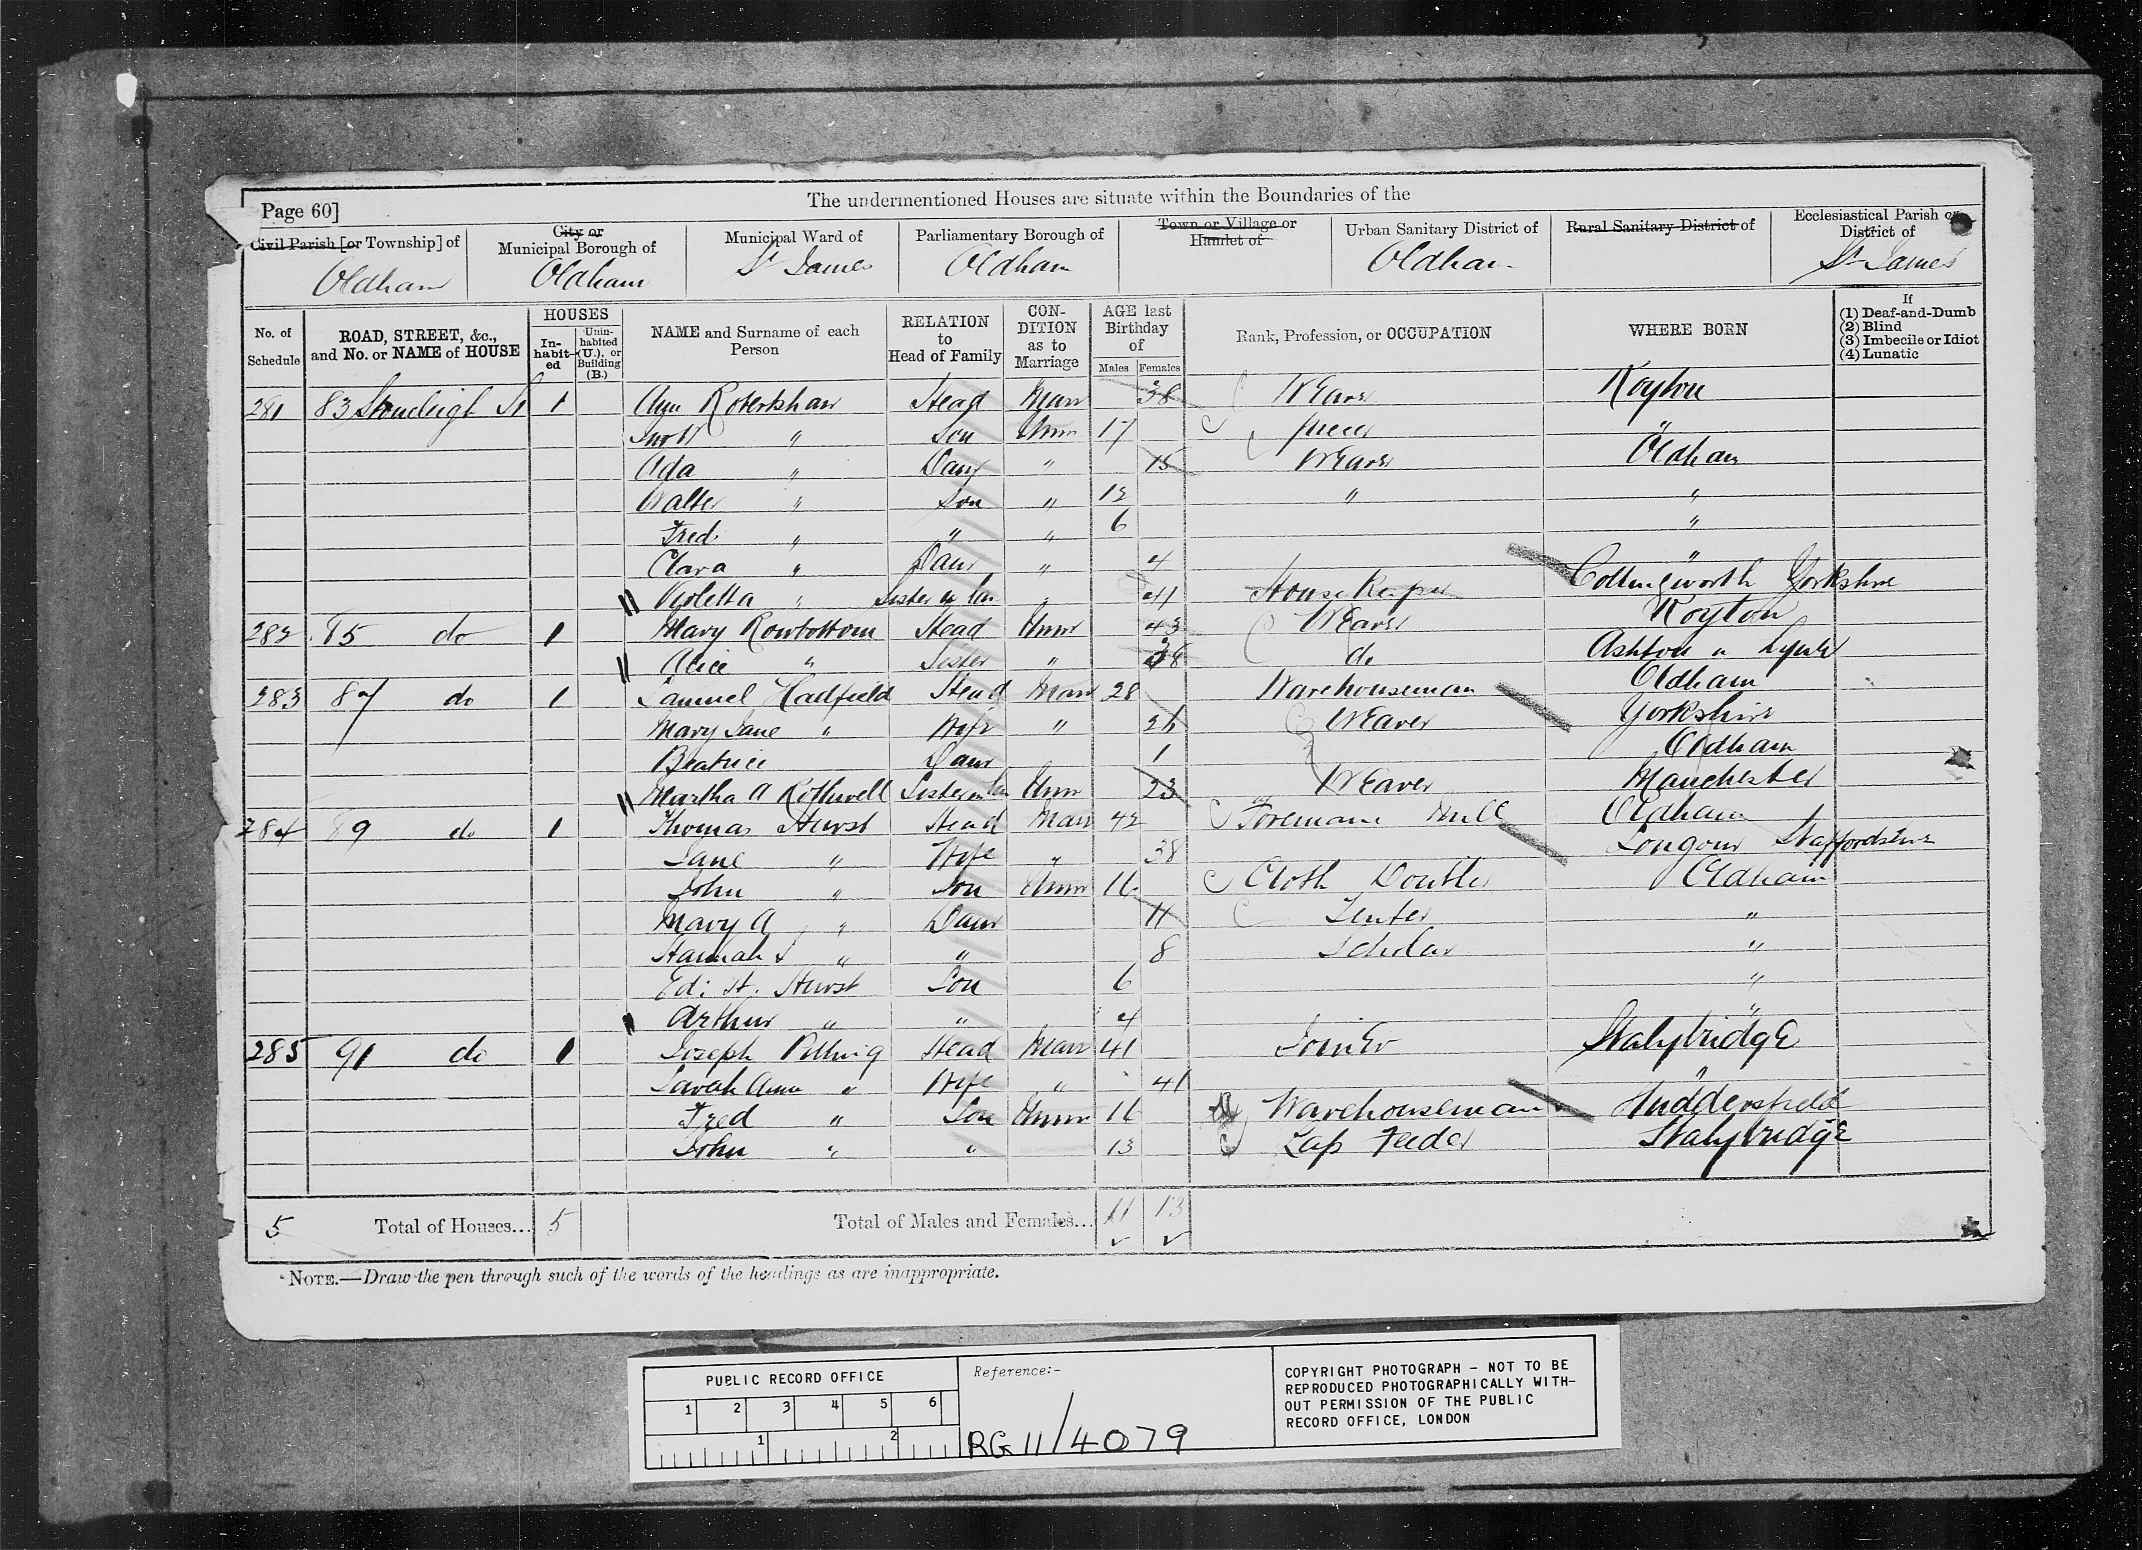 The undermentioned Houses are situate within the Boundaries of the
Page 60]
Civil Parish [or Township] of
City or Municipal Borough of
Municipal Ward of
Parliamentary Borough of
Town or Village or Hamlet of
Urban Sanitary District of
Rural Sanitary District of
Ecclesiastical Parish or District of
Oldham Oldham St James Oldham Oldham St James
No. of Schedule
ROAD, STREET, &c., and No. or NAME of HOUSE
HOUSES
In-habit-ed
Unin-habited (U.), or Building (B.)
NAME and Surname of each Person
RELATION to Head of Family
CON-DITION as to Marriage
AGE last Birthday of
Males Females
Rank, Profession, or OCCUPATION
WHERE BORN
If
(1) Deaf-and-Dumb
(2) Blind
(3) Imbecile or Idiot
(4) Lunatic
281 83 Stoneleigh St 1 Ann Robertshaw Head Marr 38 Weaver Royton
" Son Unm 17 "
Ada " Daur " 15 Weaver Oldham
Walter " Son " 12 " "
Fred " " " 6 "
Clara " Daur " 4 "
Violetta " Sister in law " 41 House Keeper Yorkshire
282 85 do 1 Mary Rowbottom Head Unm 43 Weaver Royton
Alice " Sister " 38 do Ashton u Lyne
283 87 do 1 Samuel Hadfield Head Marr 28 Warehouseman Oldham
Mary Jane " Wife " 26 Weaver Yorkshire
Beatrice Daur 1 Oldham
Martha A Rothwell Sister in law Unm 23 Weaver Manchester
284 89 do 1 Thomas Hurst Head Marr 42 Foreman Mill Oldham
Jane " Wife " 38 Longnor Staffordshire
John " Son Unm 16 Cloth Doubler Oldham
Mary A " Daur 11 Tenter "
Hannah S " " 8 Scholar "
Ed: H. Hurst Son 6 "
Arthur " " 4 "
285 91 do 1 Joseph Pilling Head Marr 41 Joiner Stalybridge
Sarah Ann " Wife " 41 "
Fred " Son Unm 16 Warehouseman Huddersfield
John " " 13 Lap Feeder Stalybridge
5 Total of Houses... 5 Total of Males and Females... 11 13
NOTE.—Draw the pen through such of the words of the headings as are inappropriate.
PUBLIC RECORD OFFICE
1 2 3 4 5 6
1 2
Reference:-
RG 11/4079
COPYRIGHT PHOTOGRAPH - NOT TO BE
REPRODUCED PHOTOGRAPHICALLY WITH-
OUT PERMISSION OF THE PUBLIC
RECORD OFFICE, LONDON